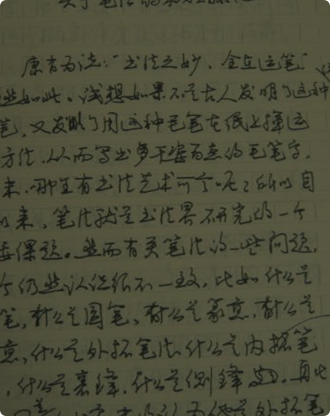 关于笔法的
康有为说：“书法之妙，全在运笔”
然如此。试想如果不是古人发明了这种
笔，又发明了用这种毛笔在纸上挥运
方法，从而写出多种姿态的毛笔字，
来，哪里有书法艺术可言呢？所以自
以来，笔法就是书法界研究的一个
要课题。然而有关笔法的一些问题，
今仍然认识很不一致，比如什么是
笔，什么是圆笔，什么是篆意，什么是
意，什么是外拓笔法，什么是内擫笔
，什么是裹锋，什么是侧锋